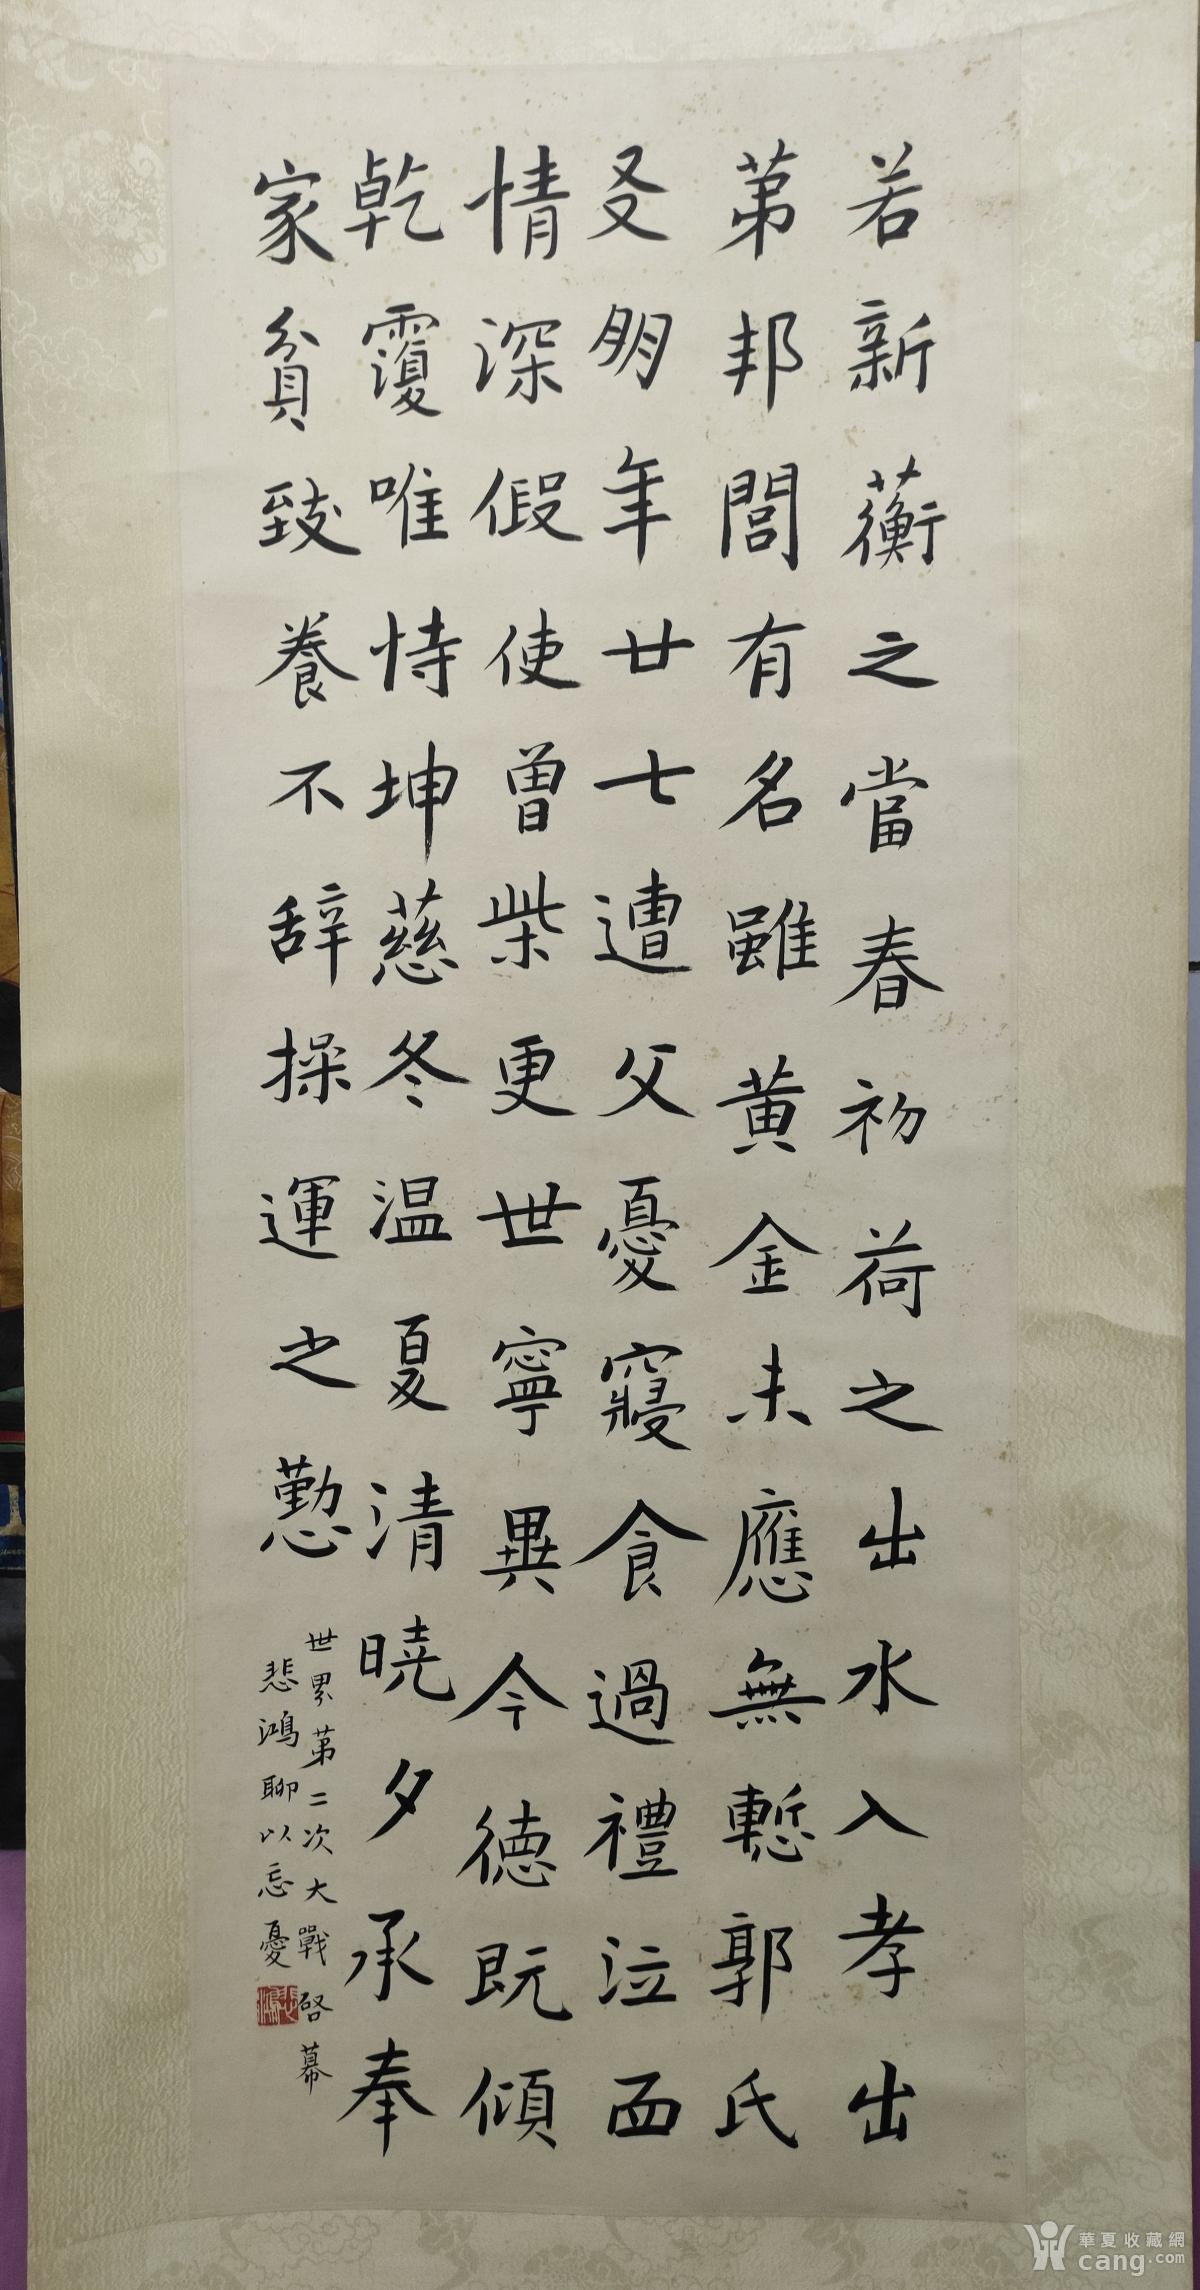 若新蘅之當春初荷之出水入孝出
苐邦閭有名雖黄金未應無慙郭氏
友朋年廿七遭父憂寢食過禮泣面
情深假使曾柴更世寧異今德既傾
乾覆唯恃坤慈冬温夏清曉夕承奉
家貧致養不辞操運之懃
世界苐二次大戰啓幕
悲鴻聊以忘憂
悲鴻
華夏收藏網
cang.com